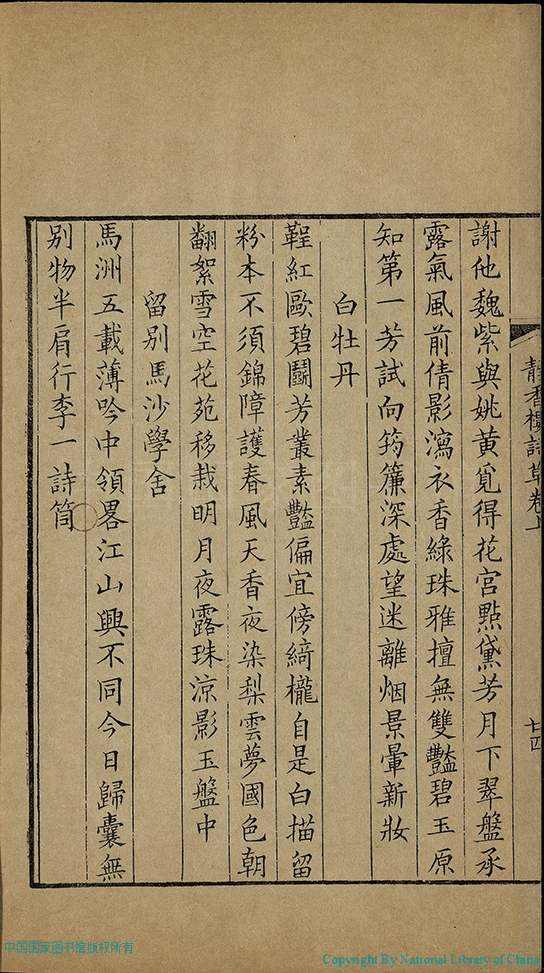 靜香樓詩草卷上
七四
謝他魏紫與姚黃覓得花宮點黛芳月下翠盤承
露氣風前倩影瀉衣香綠珠雅擅無雙豔碧玉原
知第一芳試向筠簾深處望迷離烟景暈新妝
白牡丹
鞓紅歐碧鬭芳叢素豔偏宜傍綺櫳自是白描留
粉本不須錦障護春風天香夜染梨雲夢國色朝
翻絮雪空花苑移栽明月夜露珠涼影玉盤中
留別馬沙學舍
馬洲五載薄吟中領畧江山興不同今日歸囊無
別物半肩行李一詩筒
中国国家图书馆版权所有
Copyright By National Library of China